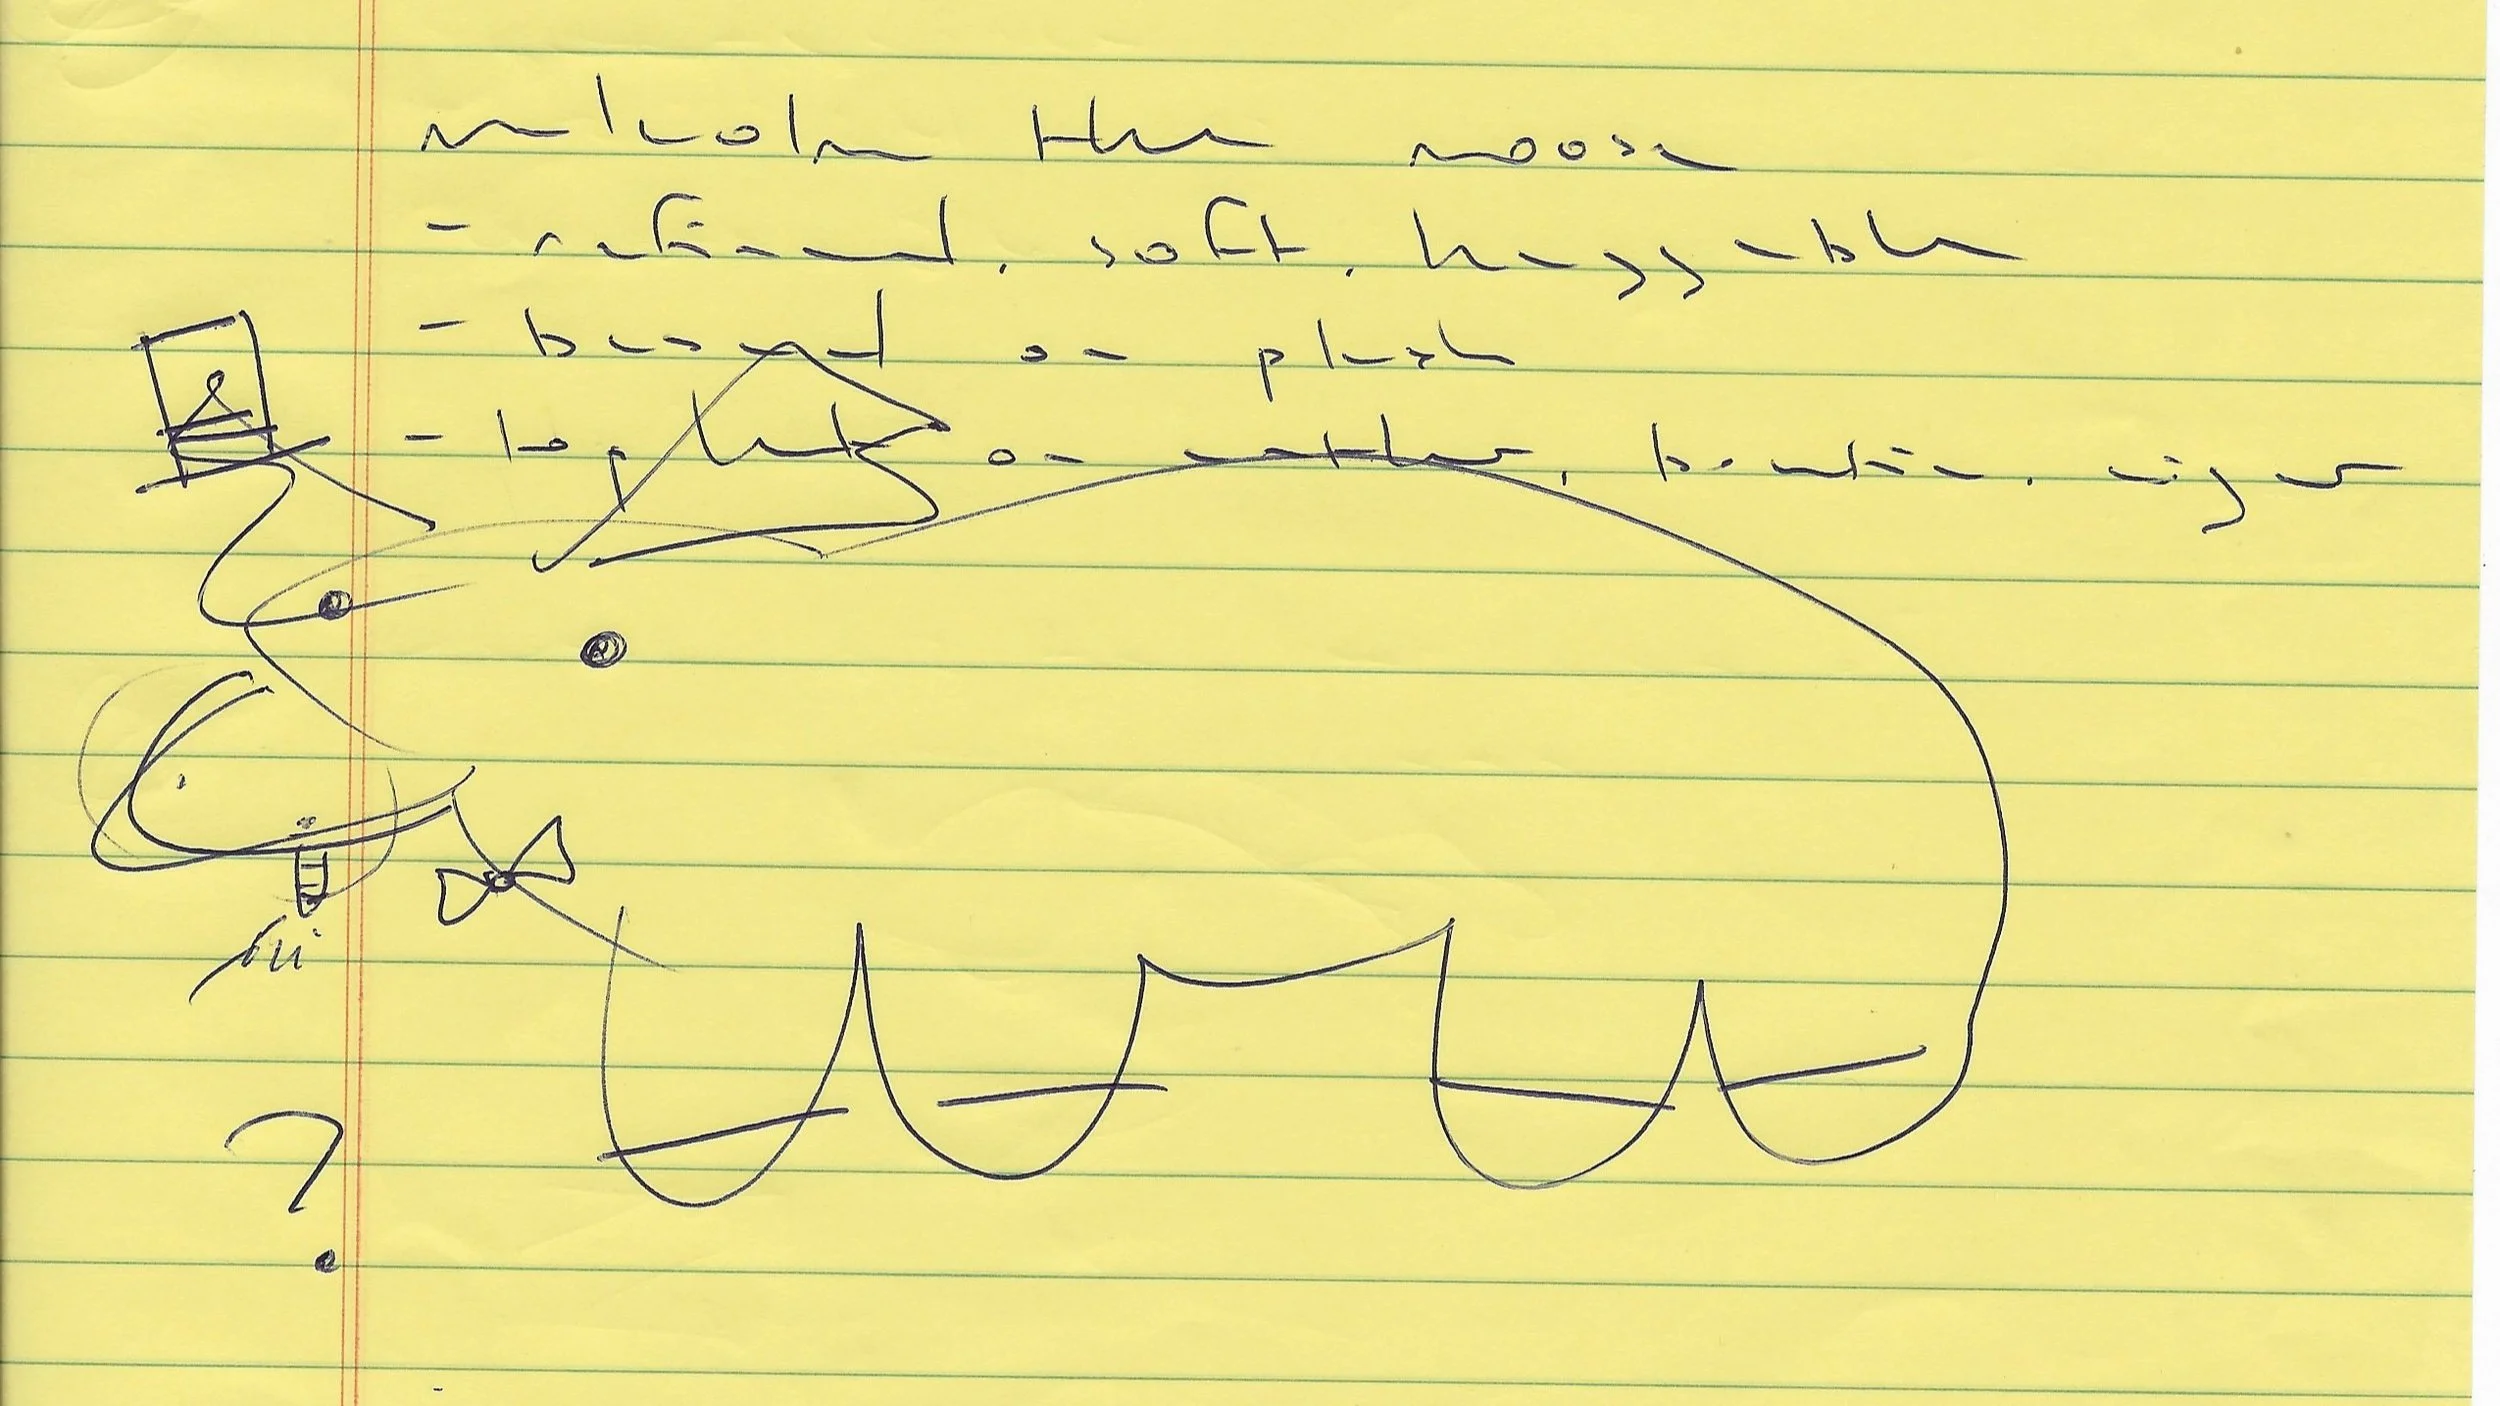 malcolm the moose
- rational, soft, huggable
- based on plush
- top hat or bowtie, cigar
?